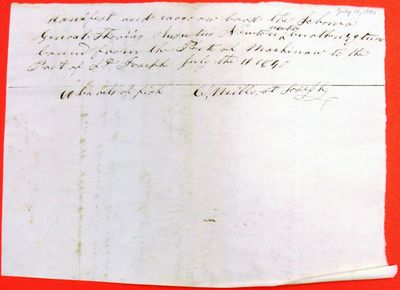 July 11, 1840
Manifest and cargo on board the Schoner
General Thornis Augustus Newton master burthen 90 tuns
bound from the Port of Mackinaw to the
Port of St Joseph July the 11 1840
60 barels of fish C, Mills, St Joseph